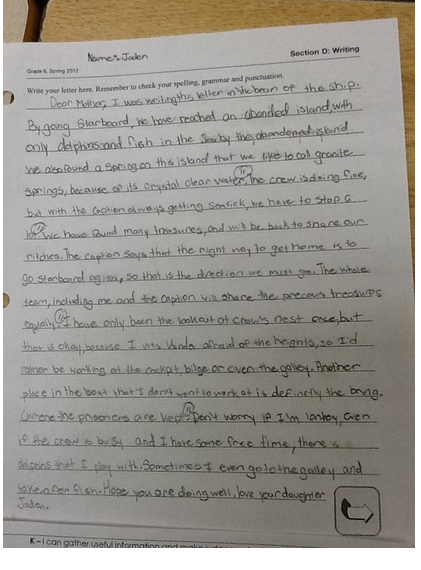 Name: Jaden
Section D: Writing
Grade 6, Spring 2012
Write your letter here. Remember to check your spelling, grammar and punctuation.
Dear Mother, I was writing this letter in the bean of the ship.
By going Starboard, we have reached an abonded island, with
only dolphins and fish in the Sea by the abandoned island.
We also found a spring on this island that we like to call granite
springs, because of its crystal clear water. The crew is doing fine,
but with the caption always getting seasick, we have to stop a
lot. We have found many treasures, and will be back to share our
ritches. The caption says that the right way to get home is to
go starboard agian, so that is the direction we must go. The whole
team, including me and the caption will share the precous treasures
equally. I have only been the lookout at crow's nest once, but
that is okay, because I was kinda afraid of the heights, so I'd
rather be working at the cockpit, bilge or even the galley. Another
place in the boat that I don't want to work at is definetly the brag.
(where the prisoners are kept) Don't worry if I'm lonley, Even
if the crew is busy and I have some free time, there is
dolphins that I play with. Sometimes I even go to the galley and
take a few fish. Hope you are doing well, love your daughter
Jaden.
K - I can gather useful information and